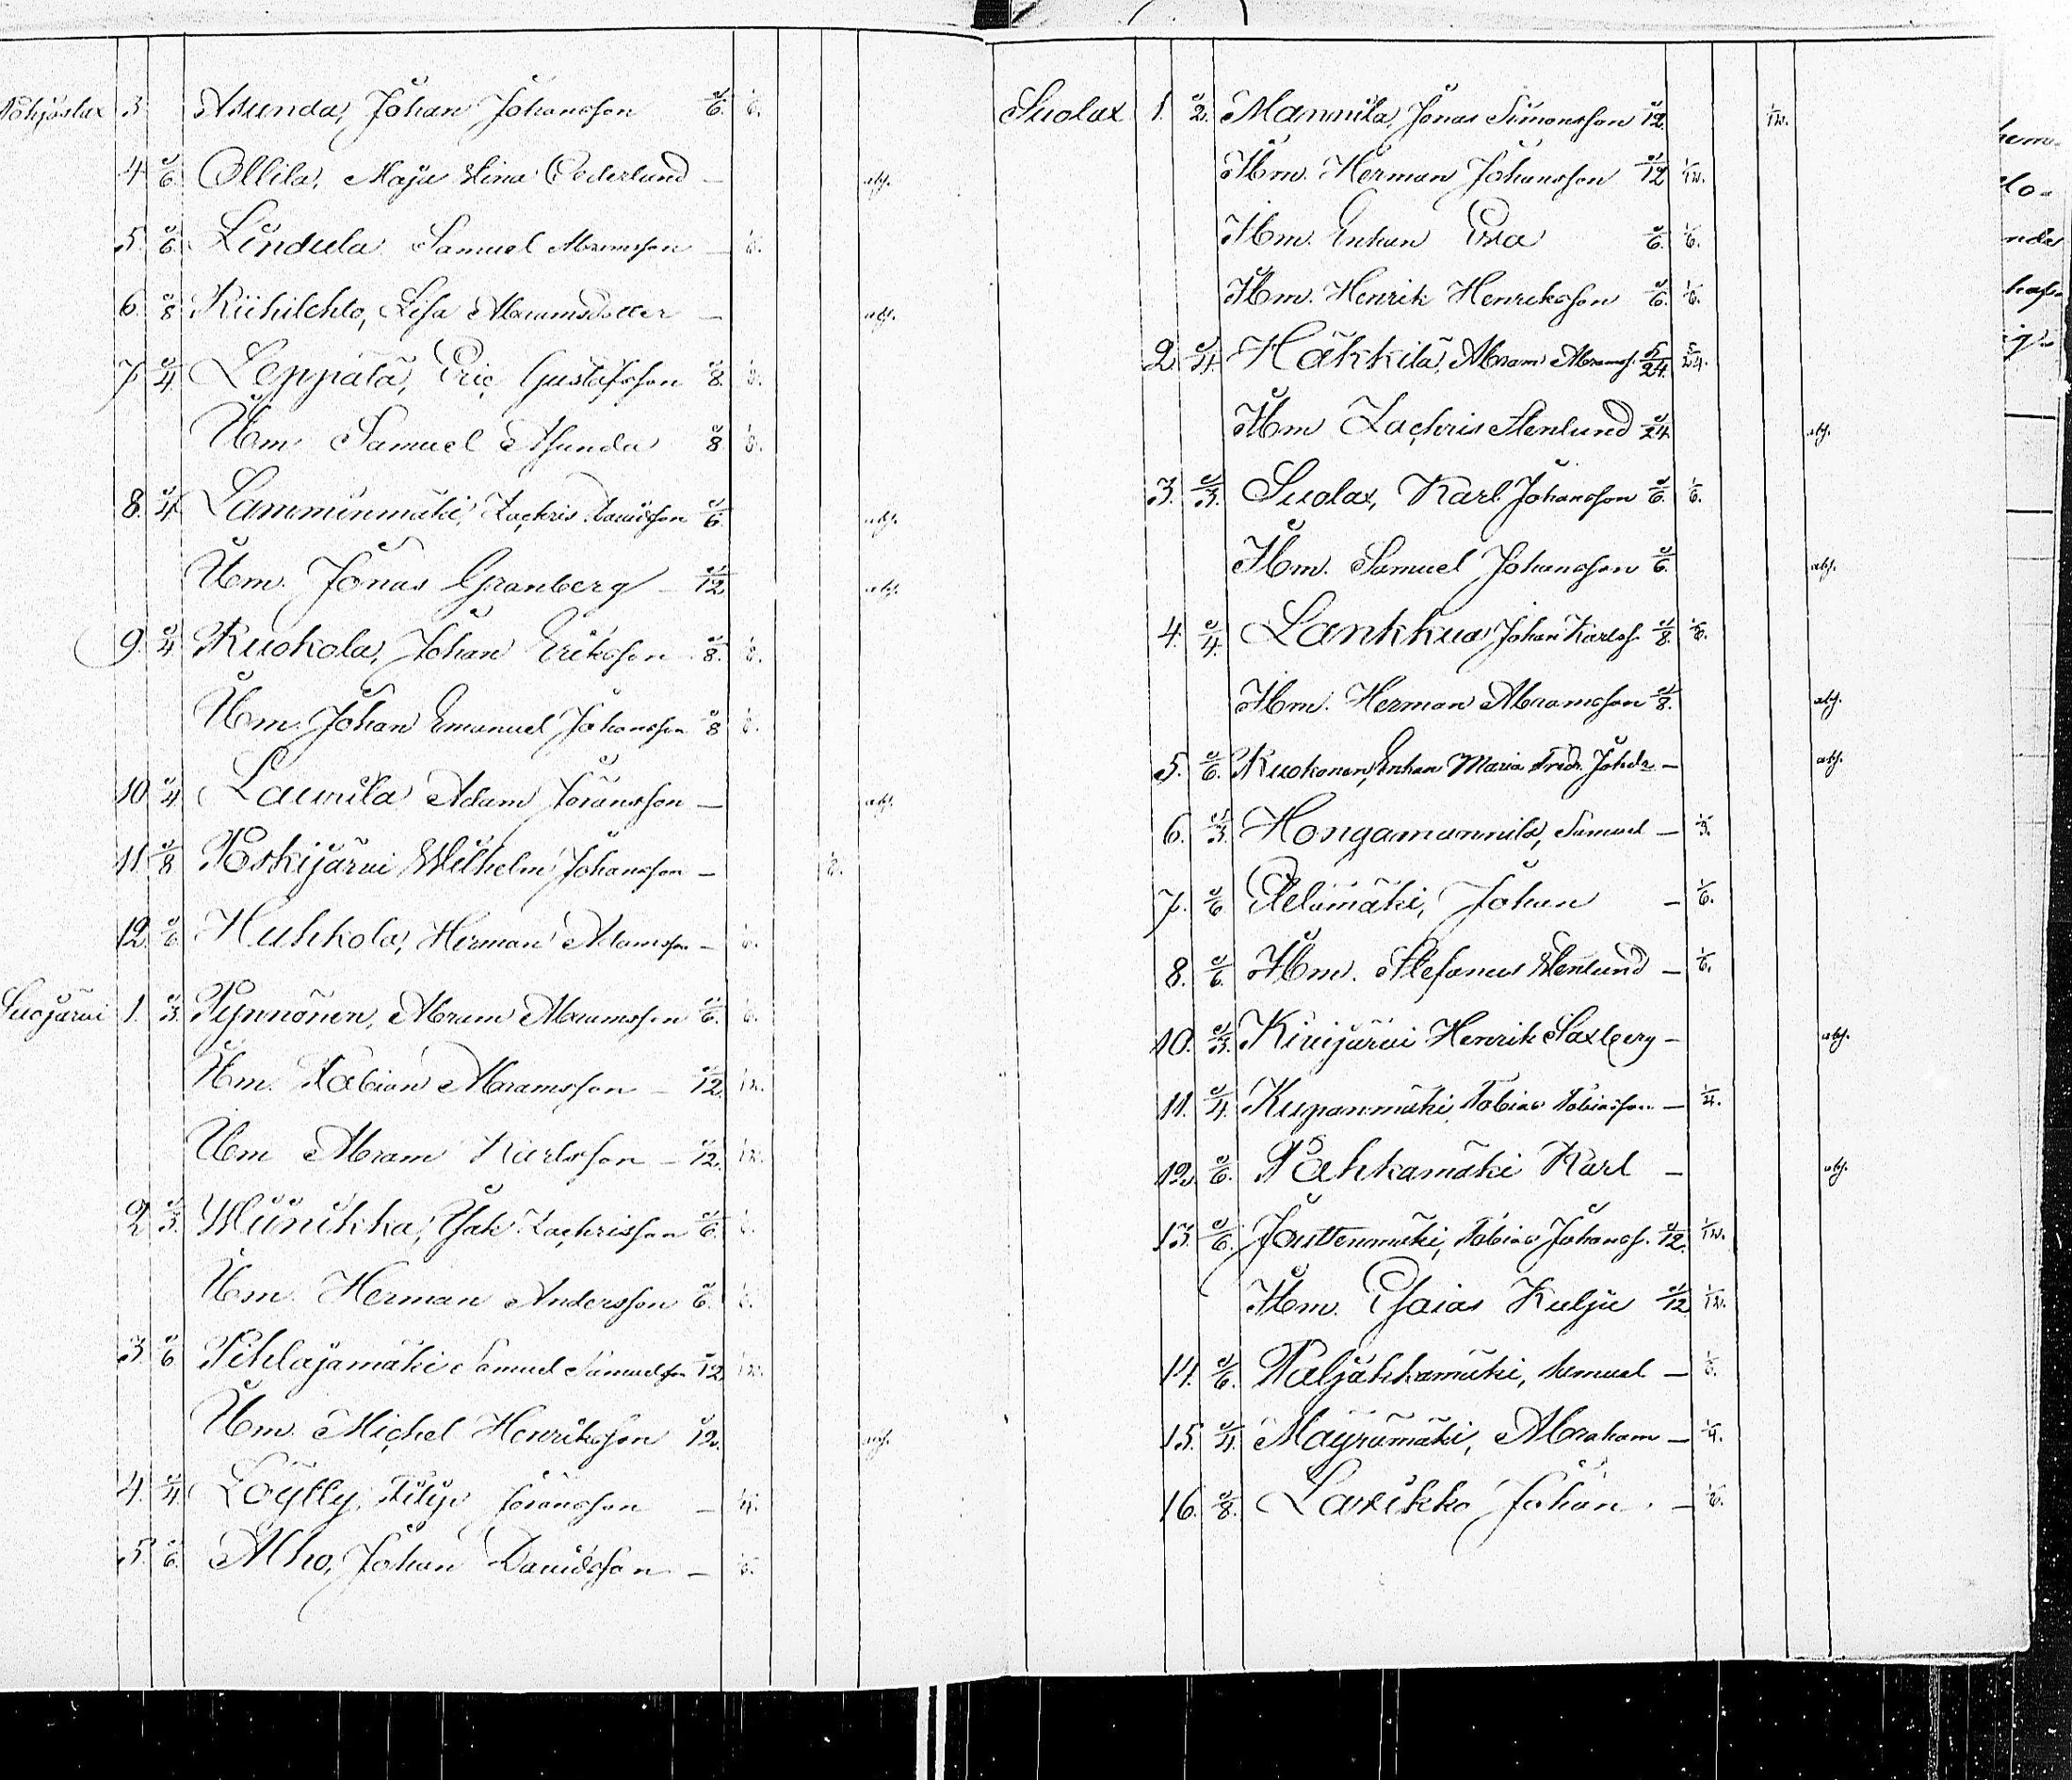 Pohjoslax 3 Asunda, Johan Johansson 1/6. 1/6.
4 1/6 Ollila, Maja Stina Cederlund — abs.
5. 1/6. Lindula Samuel Abramsson — 1/6.
6. 1/8 Riihilehto, Lisa Abramsdotter — abs.
7. 1/4 Leppälä, Eric Gustafsson 1/8. 1/8.
Hm Samuel Asunda 1/8. 1/8.
8. 1/4 Lamminmäki, Zachris Davidsson 1/6 abs.
Hm. Jonas Granberg — 1/12 abs.
9. 1/4 Ruokola, Johan Eriksson 1/8. 1/8.
Hm. Johan Emanuel Johansson 1/8 1/8.
10 1/4 Laurila Adam Göransson — abs.
11 1/8 Koskijärvi Wilhelm Johansson — 1/8.
12. 1/6 Huhkola, Herman Adamsson — 1/6.
Suojärvi 1. 1/3. Pynnönen, Abram Abramsson 1/6. 1/6.
Hm. Fabian Abramsson — 1/12. 1/12.
Hm Abram Karlsson — 1/12. 1/12.
2 1/3. Wiinikka, Isak Zachrisson 1/6. 1/6.
Hm. Herman Andersson 1/6. 1/6.
3. 1/6 Pihlajamäki Samuel Samuelsson 1/12. 1/12.
Hm. Michel Henriksson 1/12. abs.
4. 1/4 Löylly, Filip Göransson — 1/4.
5. 1/6. Alho, Johan Davidsson — 1/6.
Suolax 1. 1/2. Mannila, Jonas Simonsson 1/12. 1/12.
Hm. Herman Johansson 1/12 1/12.
Hm. Enkan Eva 1/6. 1/6.
Hm. Henrik Henriksson 1/6. 1/6.
2. 1/4. Häkkilä, Abram Abramss. 5/24. 5/24.
Hm Zachris Stenlund 1/24 abs.
3. 1/3. Suolax, Karl Johansson 1/6. 1/6.
Hm. Samuel Johansson 1/6. abs.
4. 1/4. Lankkua, Johan Karlss. 1/8. 1/8.
Hm. Herman Abramsson 1/8. abs.
5. 1/6. Ruokonen, Enkan Maria Fred. Johdr — abs.
6. 1/3. Hongamannila, Samuel — 1/3.
7. 1/6 Johan — 1/6.
8. 1/6. Hm. Stefanus Stenlund — 1/6.
10. 1/3. Kivijärvi Henrik Saxberg — abs.
11. 1/4. Kupanmäki, Tobias Tobiasson — 1/4.
12. 1/6. Pahkamäki Karl — abs.
13. 1/6. Jouttenmäki, Tobias Johanss. 1/12. 1/12.
Hm. Esaias Kulju 1/12. 1/12.
14. 1/6. Paljakkamäki, Samuel — 1/6.
15. 1/4. Mäyrämäki, Abraham — 1/4.
16. 1/8. Lavikko Johan. — 1/8.